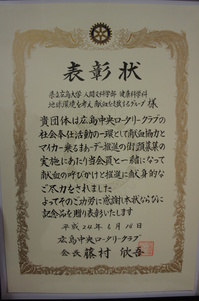 表彰状
県立広島大学 人間文化学部 健康科学科
地球環境を考え献血を支援するグループ 様
貴団体は広島中央ロータリークラブの
社会奉仕活動の一環として献血協力と
マイカー乗るまぁデー推進の街頭募集の
実施にあたり当会員と一緒になって
献血の呼びかけと推進に献身的な
ご尽力をされました
よってそのご功労に感謝し本状ならびに
記念品を贈り表彰いたします
平成24年6月18日
広島中央ロータリークラブ
会長 藤村 欣吾